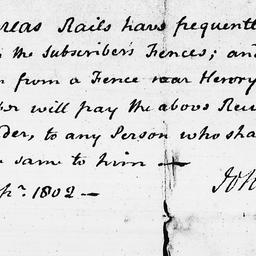 reas Rails have frequentl
the Subscriber's Fences; and
from a Fence near Henry
will pay the above Rew
der, to any Person who sha
same to him —
1802 —
JOH